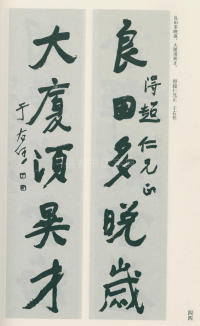 良田多晚歲，大廈須異才。
良田多晚歲
仁兄正
大廈須異才
于右任
四四